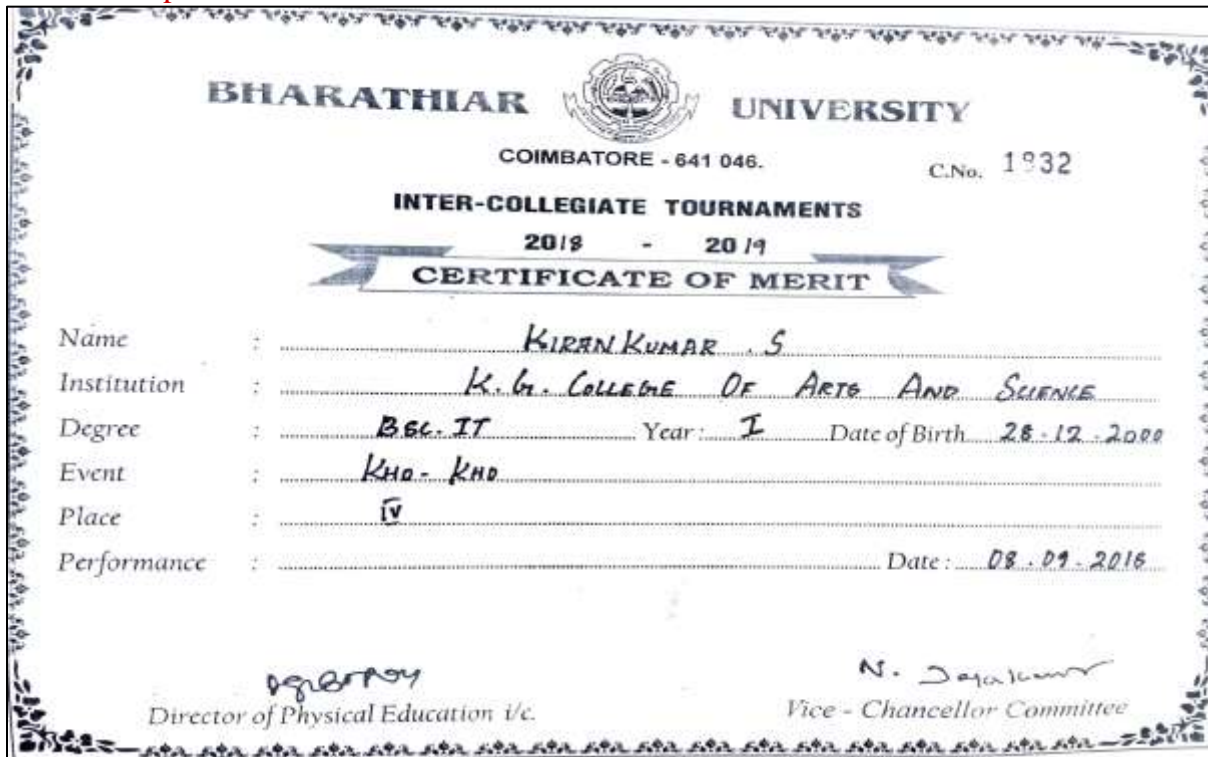 BHARATHIAR UNIVERSITY
COIMBATORE - 641 046.
C.No. 1932
INTER-COLLEGIATE TOURNAMENTS
2018 - 2019
CERTIFICATE OF MERIT
Name : KIRAN KUMAR . S
Institution : K. G. COLLEGE OF ARTS AND SCIENCE
Degree : BSC. IT Year : I Date of Birth 28.12.2000
Event : KHO - KHO
Place : IV
Performance : Date : 08.09.2018
N.
Director of Physical Education i/c. Vice - Chancellor Committee